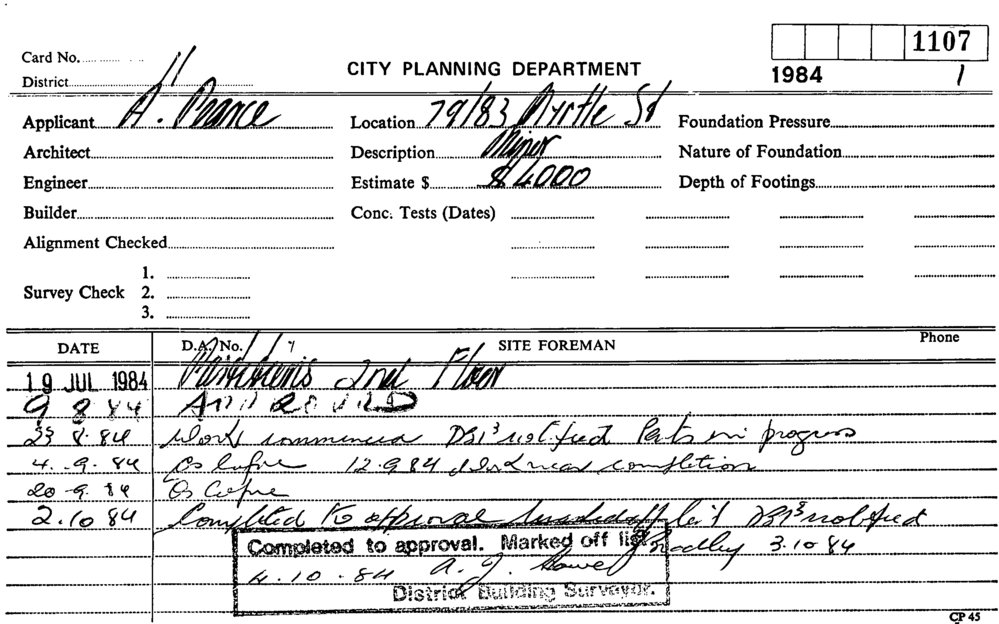 1107
Card No.
CITY PLANNING DEPARTMENT
1984 1
District
Applicant A. Pearce Location 79/83 Myrtle St Foundation Pressure
Architect Description Minor Nature of Foundation
Engineer Estimate $ $4000 Depth of Footings
Builder Conc. Tests (Dates)
Alignment Checked
1.
Survey Check 2.
3.
DATE D.A. No. SITE FOREMAN Phone
19 JUL 1984 Partitions 2nd Floor
9 8 84 APPROVED
23 8.84 Work commenced DSI³ notified Parts in progress
4.9.84 As before 12.9.84 Work near completion
20-9.84 As before
2.10 84 Completed to approval DSI³ notified
Completed to approval. Marked off list Bradley 3.10 84
4.10.84 A. J.
District Building Surveyor.
CP 45